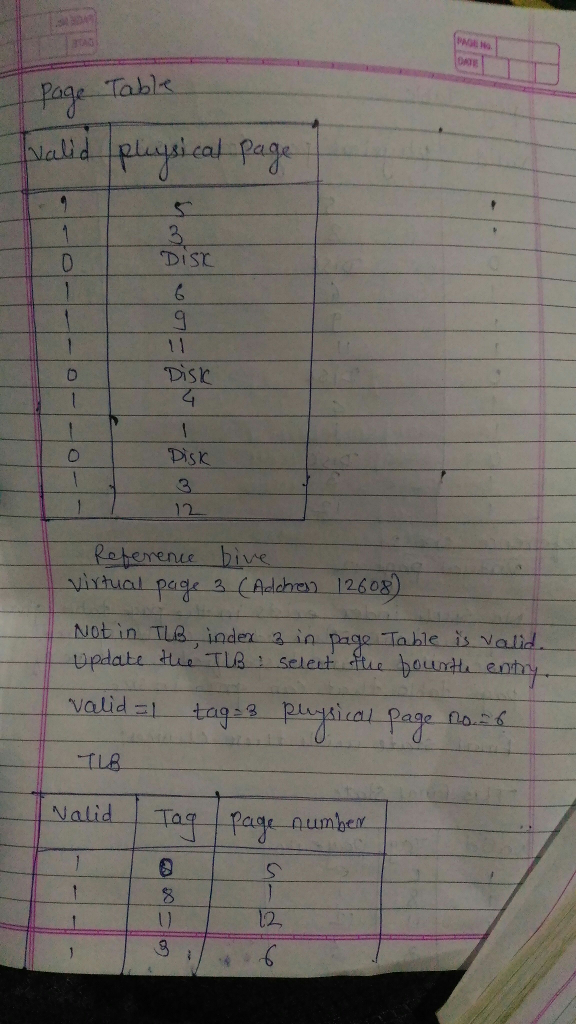 PAGE No.
DATE
Page Table
Valid physical page
1 5
1 3
0 Disk
1 6
1 9
1 11
0 Disk
1 4
1 1
0 Disk
1 3
1 12
Reference bive
Virtual page 3 (Address 12608)
Not in TLB, index 3 in page Table is valid.
Update the TLB : select the fourth entry.
Valid = 1 tag = 3 physical page no. = 6
TLB
Valid Tag Page number
1 0 5
1 8 1
1 11 12
1 3 6